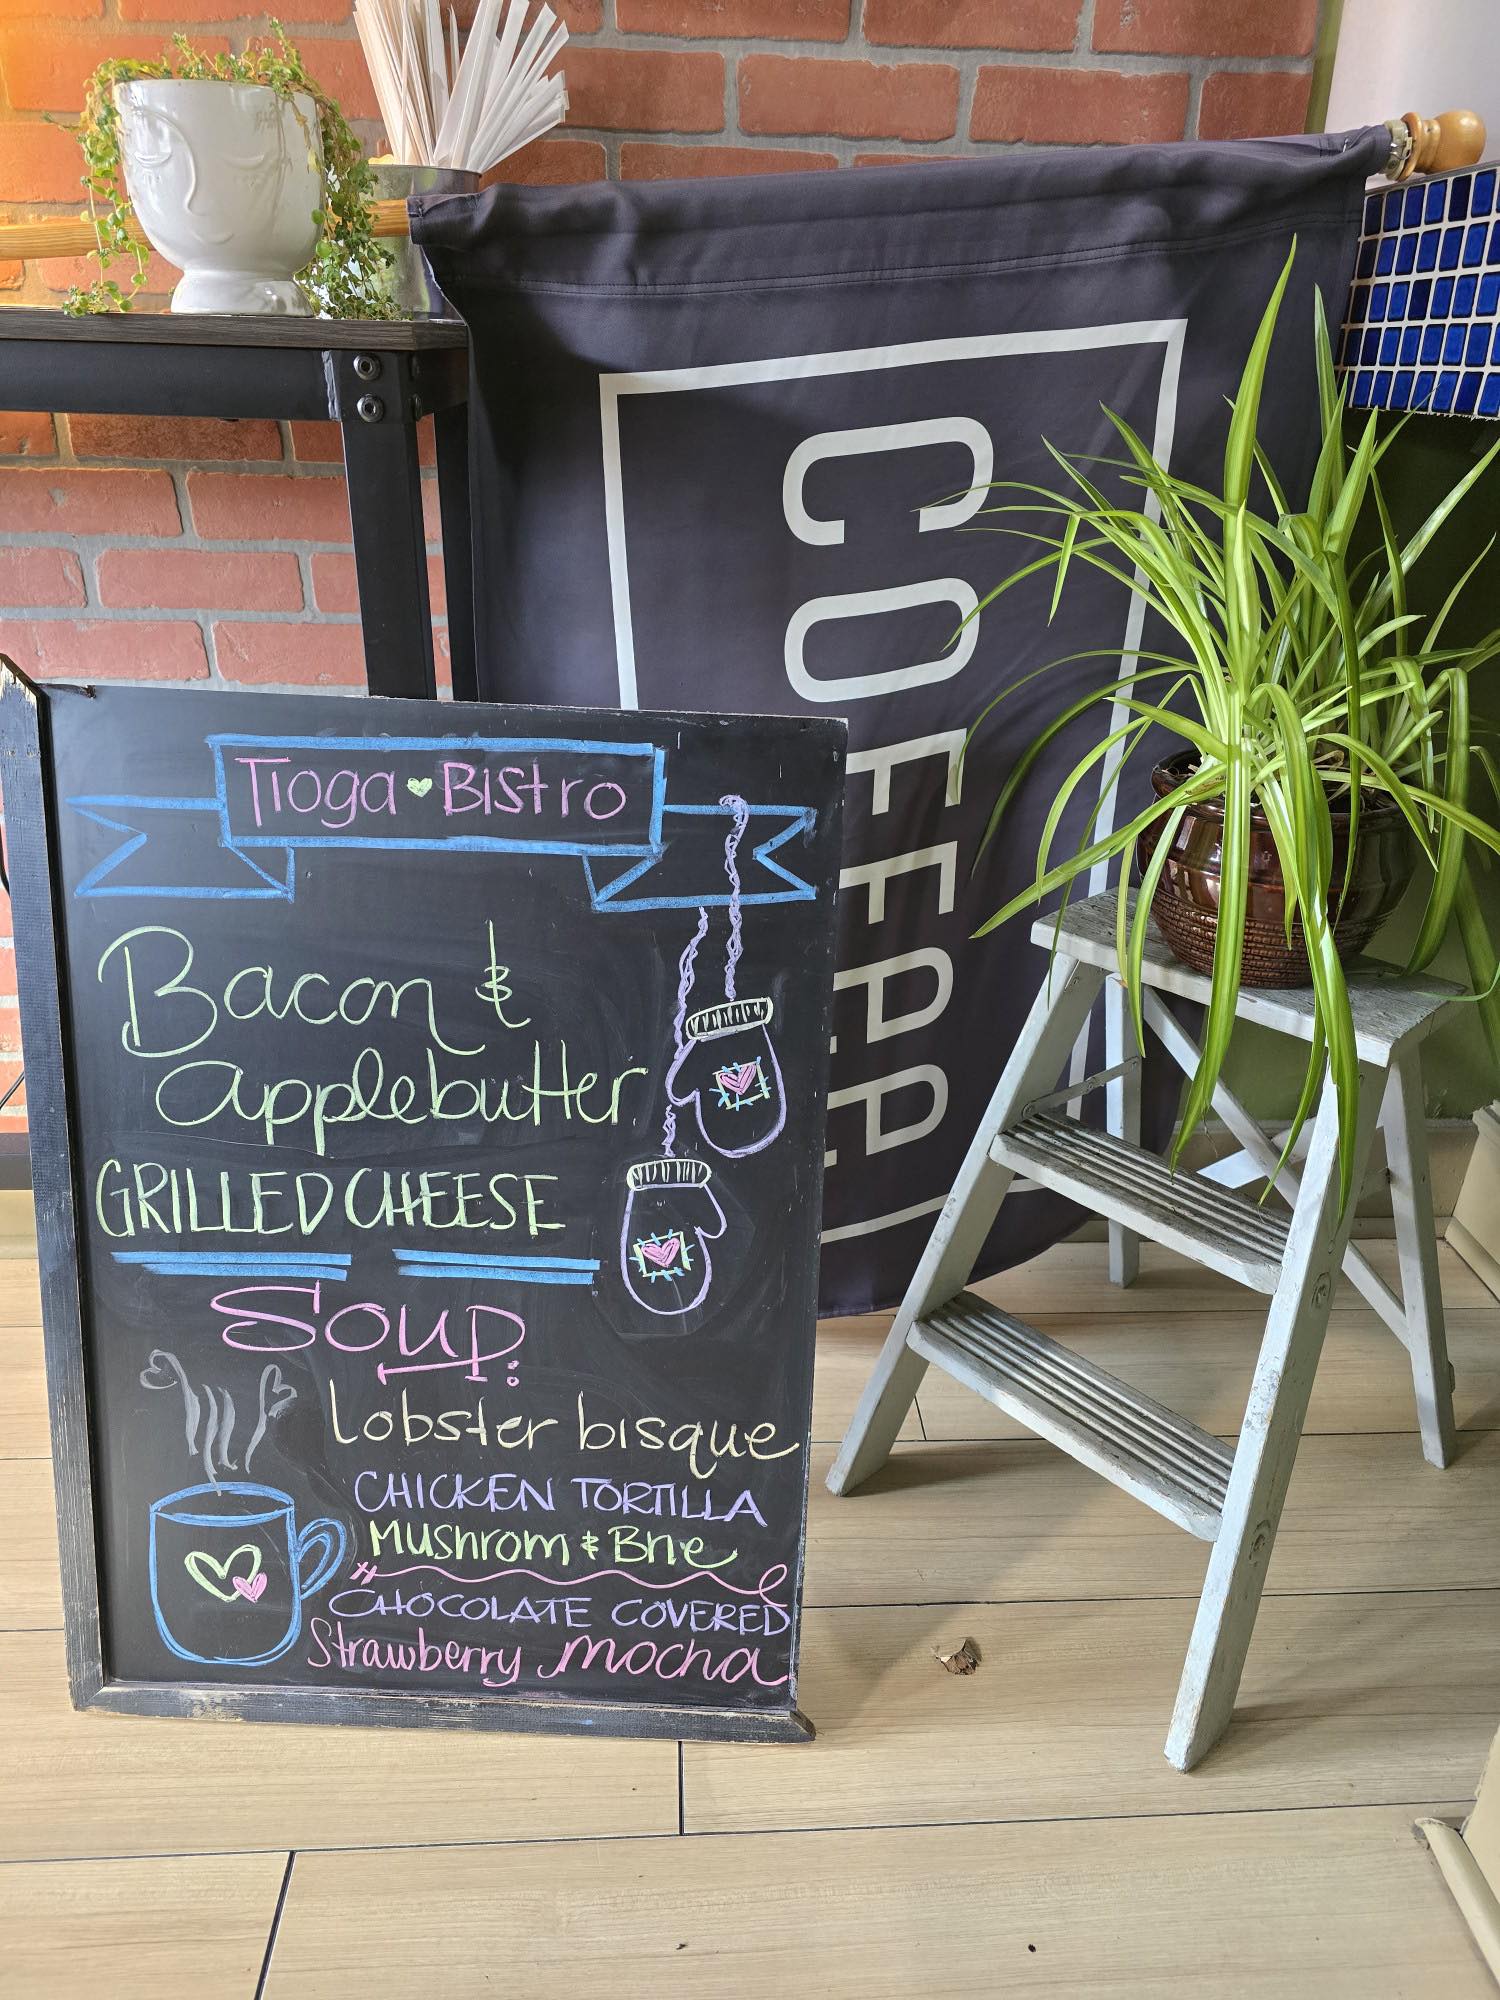 COFFEE
Tioga Bistro
Bacon &
Applebutter
GRILLED CHEESE
Soup:
Lobster bisque
CHICKEN TORTILLA
Mushrom & Brie
CHOCOLATE COVERED
Strawberry mocha